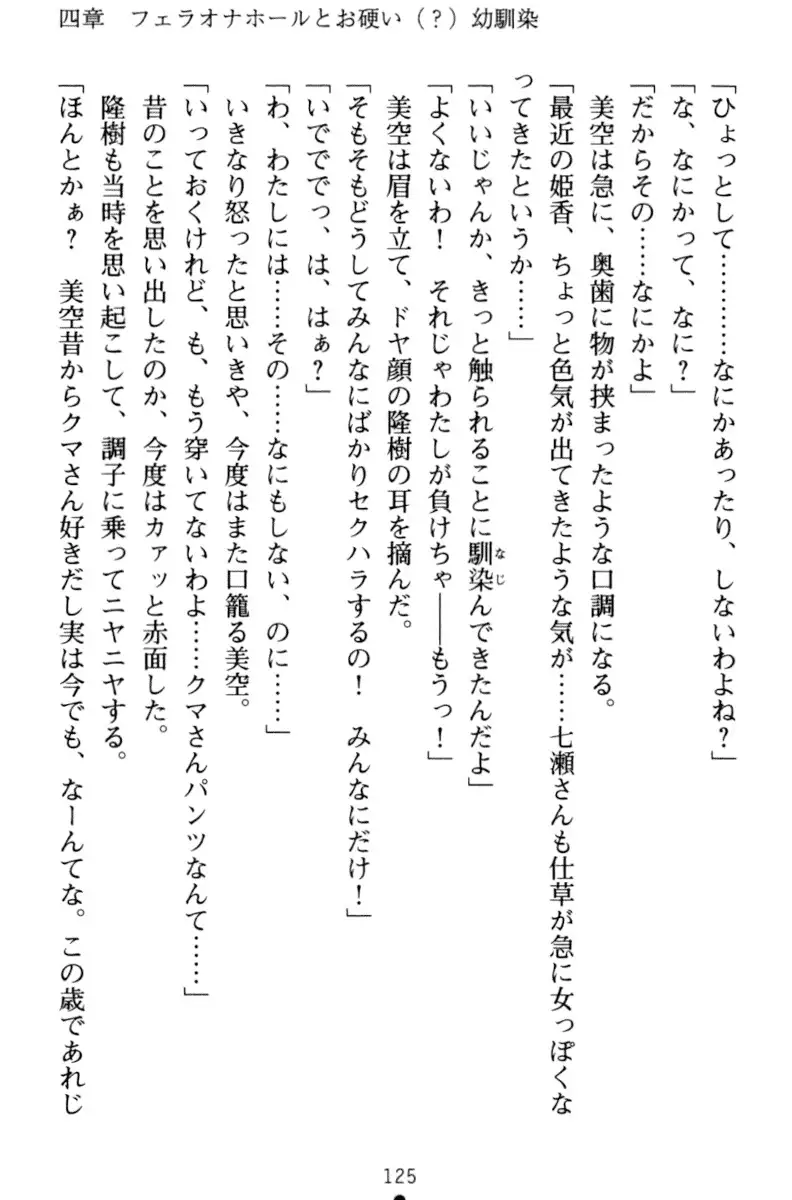 四章　フェラオナホールとお硬い（？）幼馴染
「ひょっとして…………なにかあったり、しないわよね？」
「な、なにかって、なに？」
「だからその……なにかよ」
　美空は急に、奥歯に物が挟まったような口調になる。
「最近の姫香、ちょっと色気が出てきたような気が……七瀬さんも仕草が急に女っぽくな
ってきたというか……」
「いいじゃんか、きっと触られることに馴染んできたんだよ」
「よくないわ！　それじゃわたしが負けちゃ――もうっ！」
　美空は眉を立て、ドヤ顔の隆樹の耳を摘んだ。
「そもそもどうしてみんなにばかりセクハラするの！　みんなにだけ！」
「いででっ、は、はぁ？」
「わ、わたしには……その……なにもしない、のに……」
　いきなり怒ったと思いきや、今度はまた口籠る美空。
「いっておくけれど、も、もう穿いてないわよ……クマさんパンツなんて……」
　昔のことを思い出したのか、今度はカァッと赤面した。
　隆樹も当時を思い起こして、調子に乗ってニヤニヤする。
「ほんとかぁ？　美空昔からクマさん好きだし実は今でも、なーんてな。この歳であれじ
125